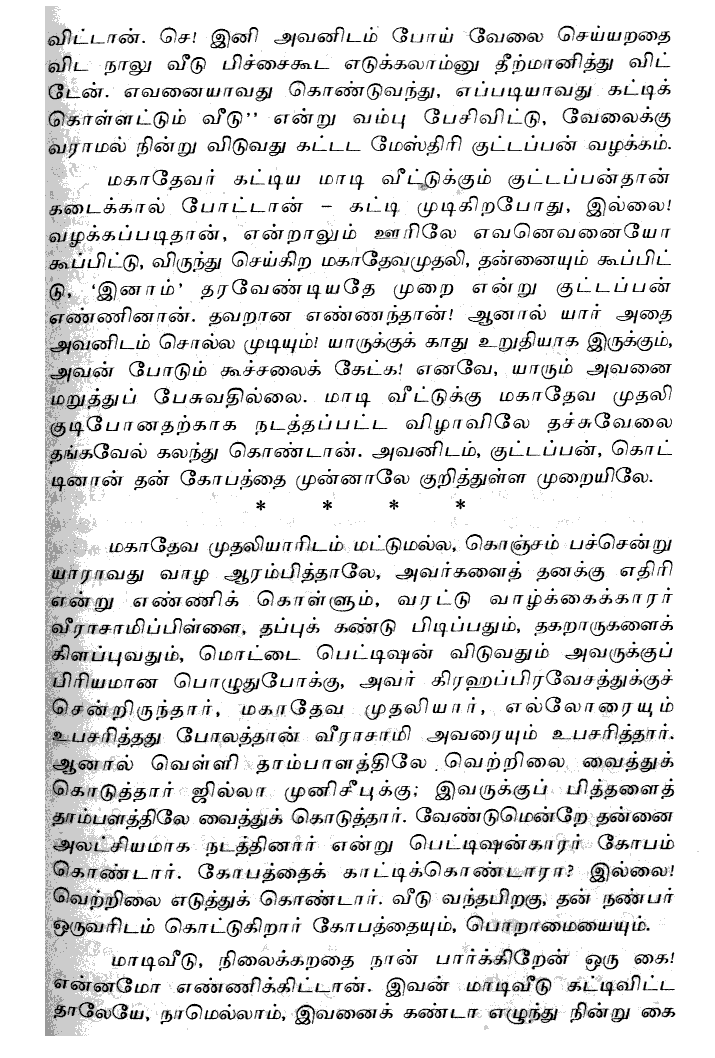 விட்டான். செ! இனி அவனிடம் போய் வேலை செய்யறதை
விட நாலு வீடு பிச்சைகூட எடுக்கலாம்னு தீற்மானித்து விட்
டேன். எவனையாவது கொண்டுவந்து, எப்படியாவது கட்டிக்
கொள்ளட்டும் வீடு'' என்று வம்பு பேசிவிட்டு, வேலைக்கு
வராமல் நின்று விடுவது கட்டட மேஸ்திரி குட்டப்பன் வழக்கம்.
மகாதேவர் கட்டிய மாடி வீட்டுக்கும் குட்டப்பன்தான்
கடைக்கால் போட்டான் – கட்டி முடிகிறபோது, இல்லை!
வழக்கப்படிதான், என்றாலும் ஊரிலே எவனெவனையோ
கூப்பிட்டு, விருந்து செய்கிற மகாதேவமுதலி, தன்னையும் கூப்பிட்
டு, 'இனாம்' தரவேண்டியதே முறை என்று குட்டப்பன்
எண்ணினான். தவறான எண்ணந்தான்! ஆனால் யார் அதை
அவனிடம் சொல்ல முடியும்! யாருக்குக் காது உறுதியாக இருக்கும்,
அவன் போடும் கூச்சலைக் கேட்க! எனவே, யாரும் அவனை
மறுத்துப் பேசுவதில்லை. மாடி வீட்டுக்கு மகாதேவ முதலி
குடிபோனதற்காக நடத்தப்பட்ட விழாவிலே தச்சுவேலை
தங்கவேல் கலந்து கொண்டான். அவனிடம், குட்டப்பன், கொட்
டினான் தன் கோபத்தை முன்னாலே குறித்துள்ள முறையிலே.
* * * *
மகாதேவ முதலியாரிடம் மட்டுமல்ல, கொஞ்சம் பச்சென்று
யாராவது வாழ ஆரம்பித்தாலே, அவர்களைத் தனக்கு எதிரி
என்று எண்ணிக் கொள்ளும், வரட்டு வாழ்க்கைக்காரர்
வீராசாமிப்பிள்ளை, தப்புக் கண்டு பிடிப்பதும், தகறாருகளைக்
கிளப்புவதும், மொட்டை பெட்டிஷன் விடுவதும் அவருக்குப்
பிரியமான பொழுதுபோக்கு, அவர் கிரஹப்பிரவேசத்துக்குச்
சென்றிருந்தார், மகாதேவ முதலியார், எல்லோரையும்
உபசரித்தது போலத்தான் வீராசாமி அவரையும் உபசரித்தார்.
ஆனால் வெள்ளி தாம்பாளத்திலே வெற்றிலை வைத்துக்
கொடுத்தார் ஜில்லா முனிசீபுக்கு; இவருக்குப் பித்தளைத்
தாம்பளத்திலே வைத்துக் கொடுத்தார். வேண்டுமென்றே தன்னை
அலட்சியமாக நடத்தினார் என்று பெட்டிஷன்காரர் கோபம்
கொண்டார். கோபத்தைக் காட்டிக்கொண்டாரா? இல்லை!
வெற்றிலை எடுத்துக் கொண்டார். வீடு வந்தபிறகு, தன் நண்பர்
ஒருவரிடம் கொட்டுகிறார் கோபத்தையும், பொறாமையையும்.
மாடிவீடு, நிலைக்கறதை நான் பார்க்கிறேன் ஒரு கை!
என்னமோ எண்ணிக்கிட்டான். இவன் மாடிவீடு கட்டிவிட்ட
தாலேயே, நாமெல்லாம், இவனைக் கண்டா எழுந்து நின்று கை